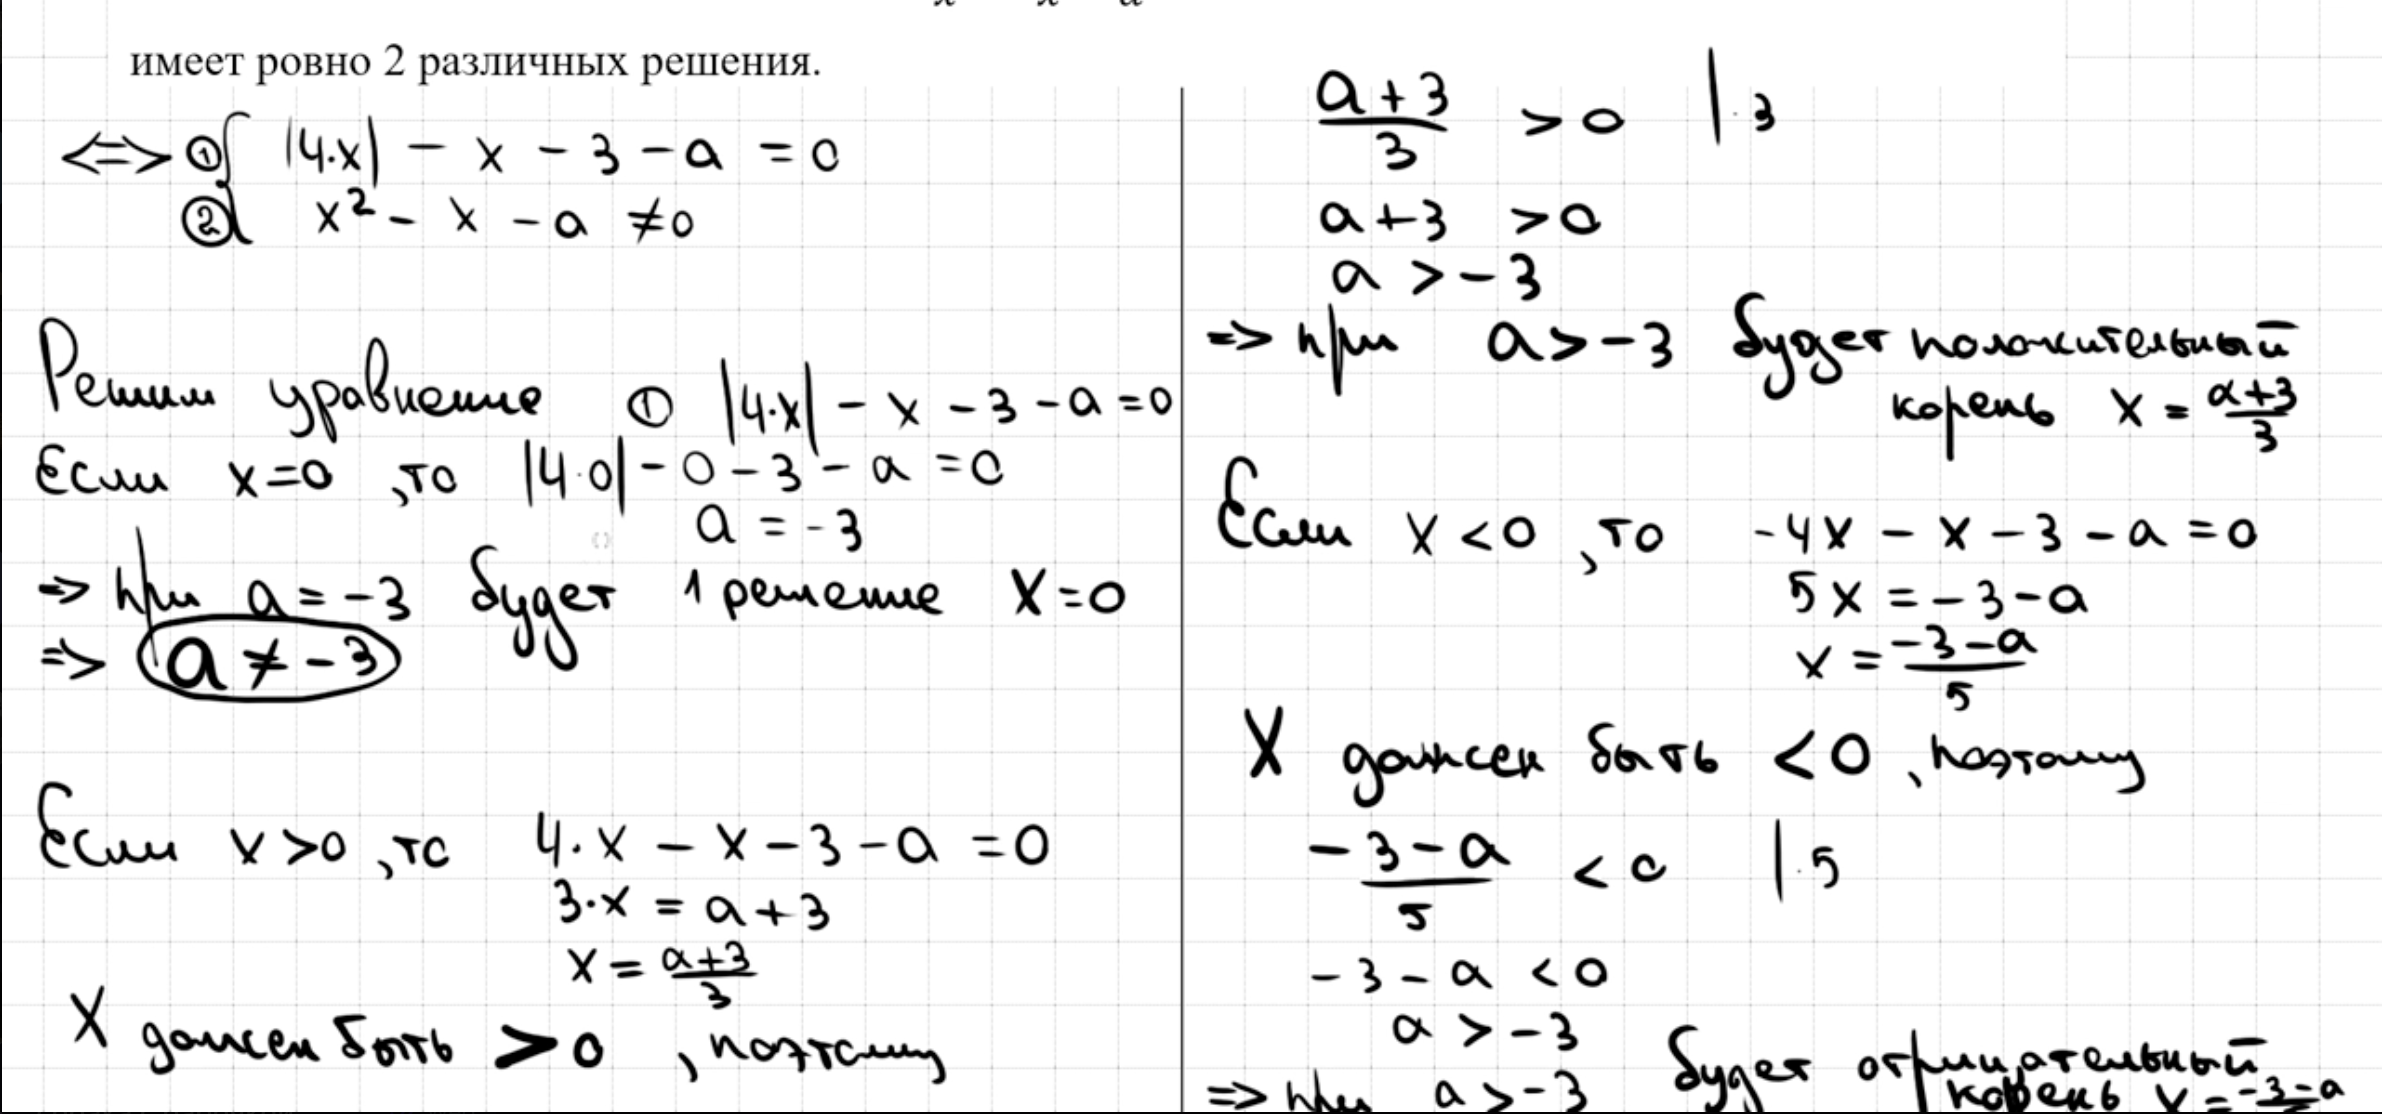 имеет ровно 2 различных решения.
<=> ① { |4·x| - x - 3 - a = 0
② { x² - x - a ≠ 0
Решим уравнение ① |4·x| - x - 3 - a = 0
Если x=0, то |4·0| - 0 - 3 - a = 0
a = -3
=> при a = -3 будет 1 решение x=0
=> a ≠ -3
Если x>0, то 4·x - x - 3 - a = 0
3·x = a + 3
x = (a+3)/3
X должен быть > 0, поэтому
(a+3)/3 > 0 | ·3
a + 3 > 0
a > -3
=> при a > -3 будет положительный
корень x = (a+3)/3
Если x < 0, то -4x - x - 3 - a = 0
5x = -3 - a
x = (-3-a)/5
X должен быть < 0, поэтому
(-3-a)/5 < 0 | ·5
-3 - a < 0
a > -3
=> при a > -3 будет отрицательный
корень x = -3-a